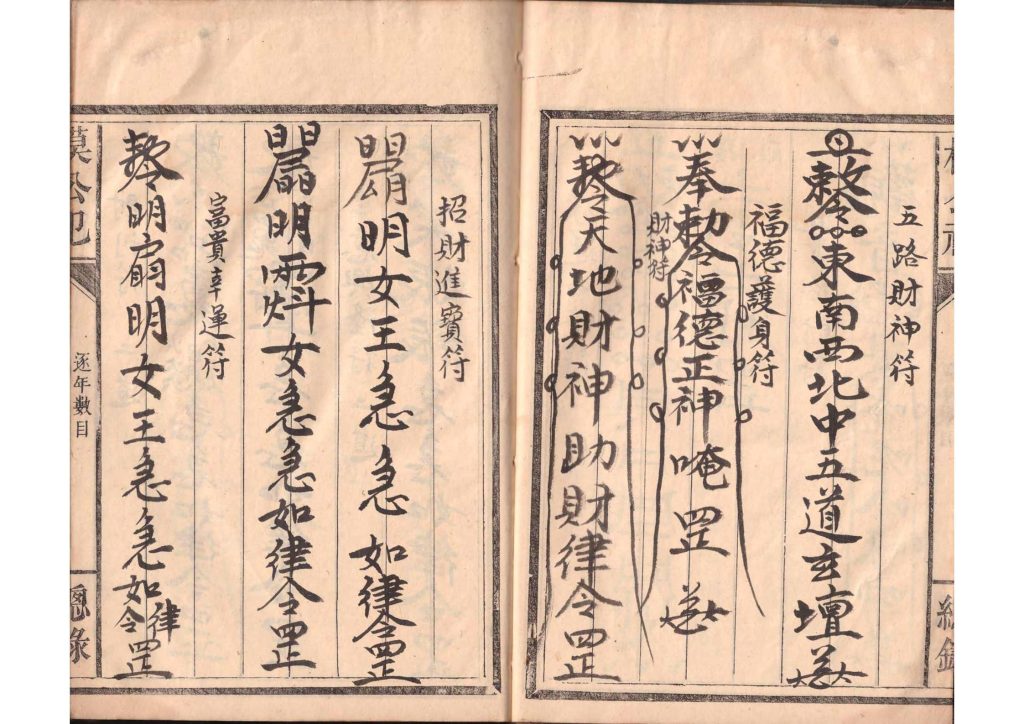 五路財神符
敕令東南西北中五道玄壇
福德護身符
奉勅令福德正神唵罡
財神符
敕令天地財神助財律令罡
招財進寶符
明女王急急如律令罡
明女急急如律令罡
富貴幸運符
敕令明扇明女王急急如律令罡
逐年數目
總錄
總錄